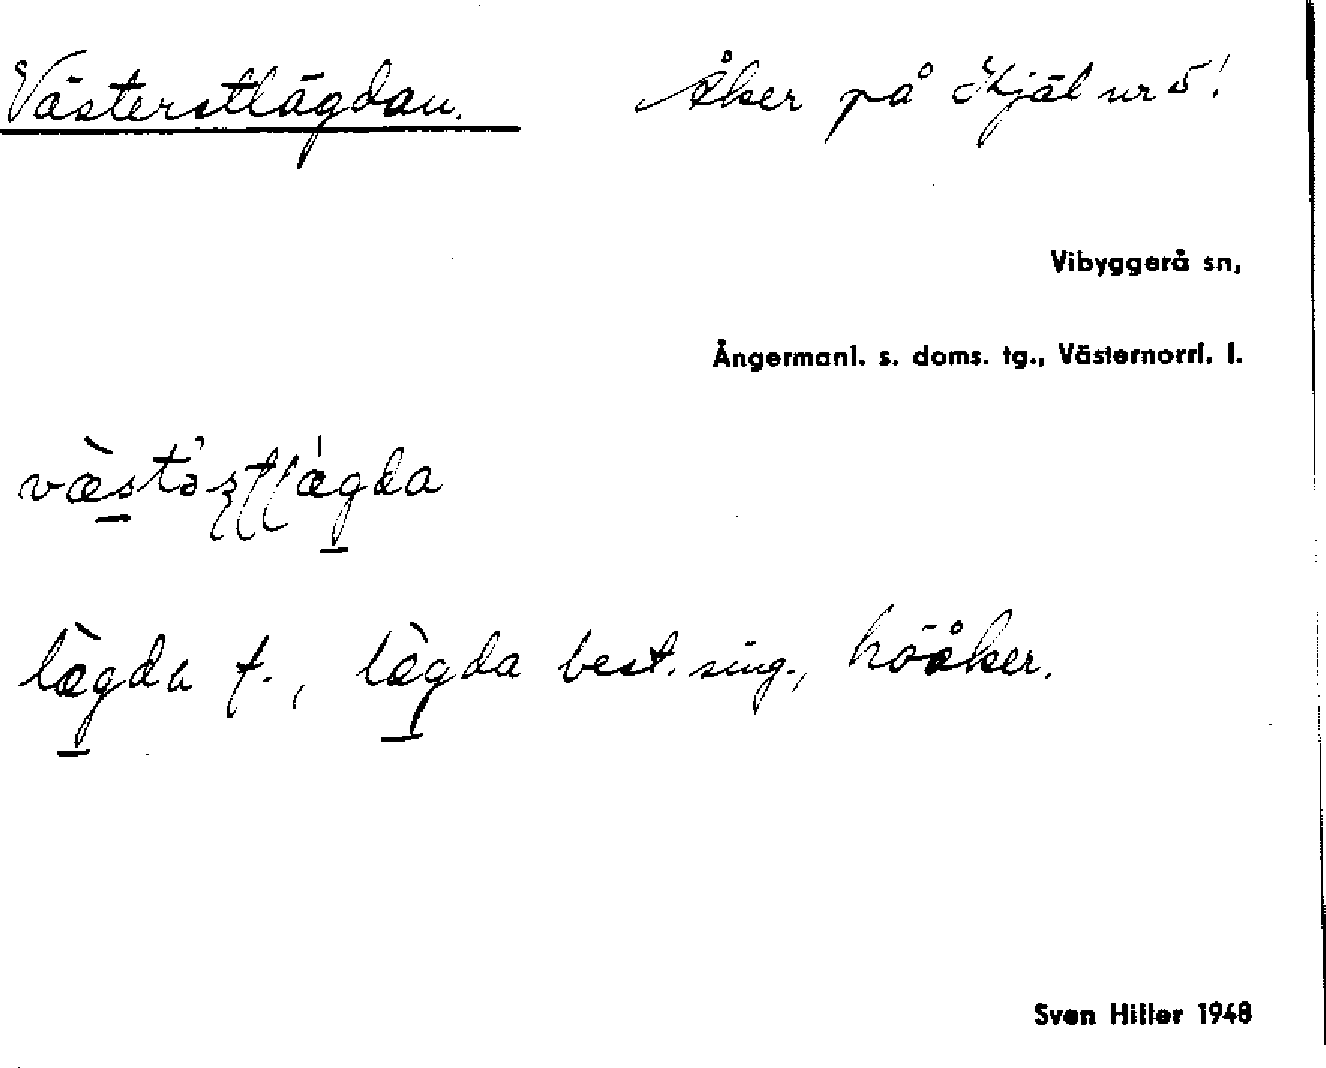 Västerstlägdan. Åker på Hjälmr 5!
Vibyggerå sn,
Ångermanl. s. doms. tg., Västernorrl. l.
lægda f., lægda best. sing., höåker.
Sven Hiller 1948